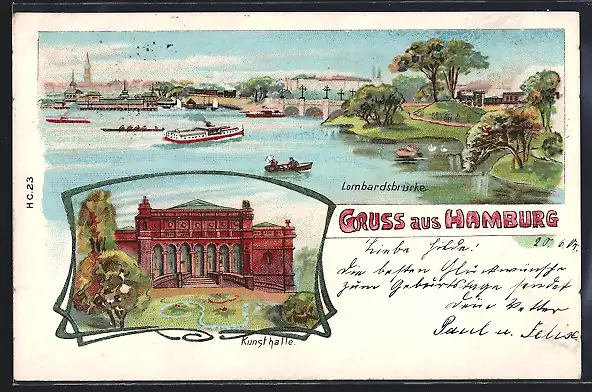 HC.23
Lombardsbrücke.
GRUSS aus HAMBURG
Liebe Hilda! 20. 6. 04.
Die besten Glückwünsche
zum Geburtstage sendet
Dein Vetter
Paul u. Felix.
Kunsthalle.